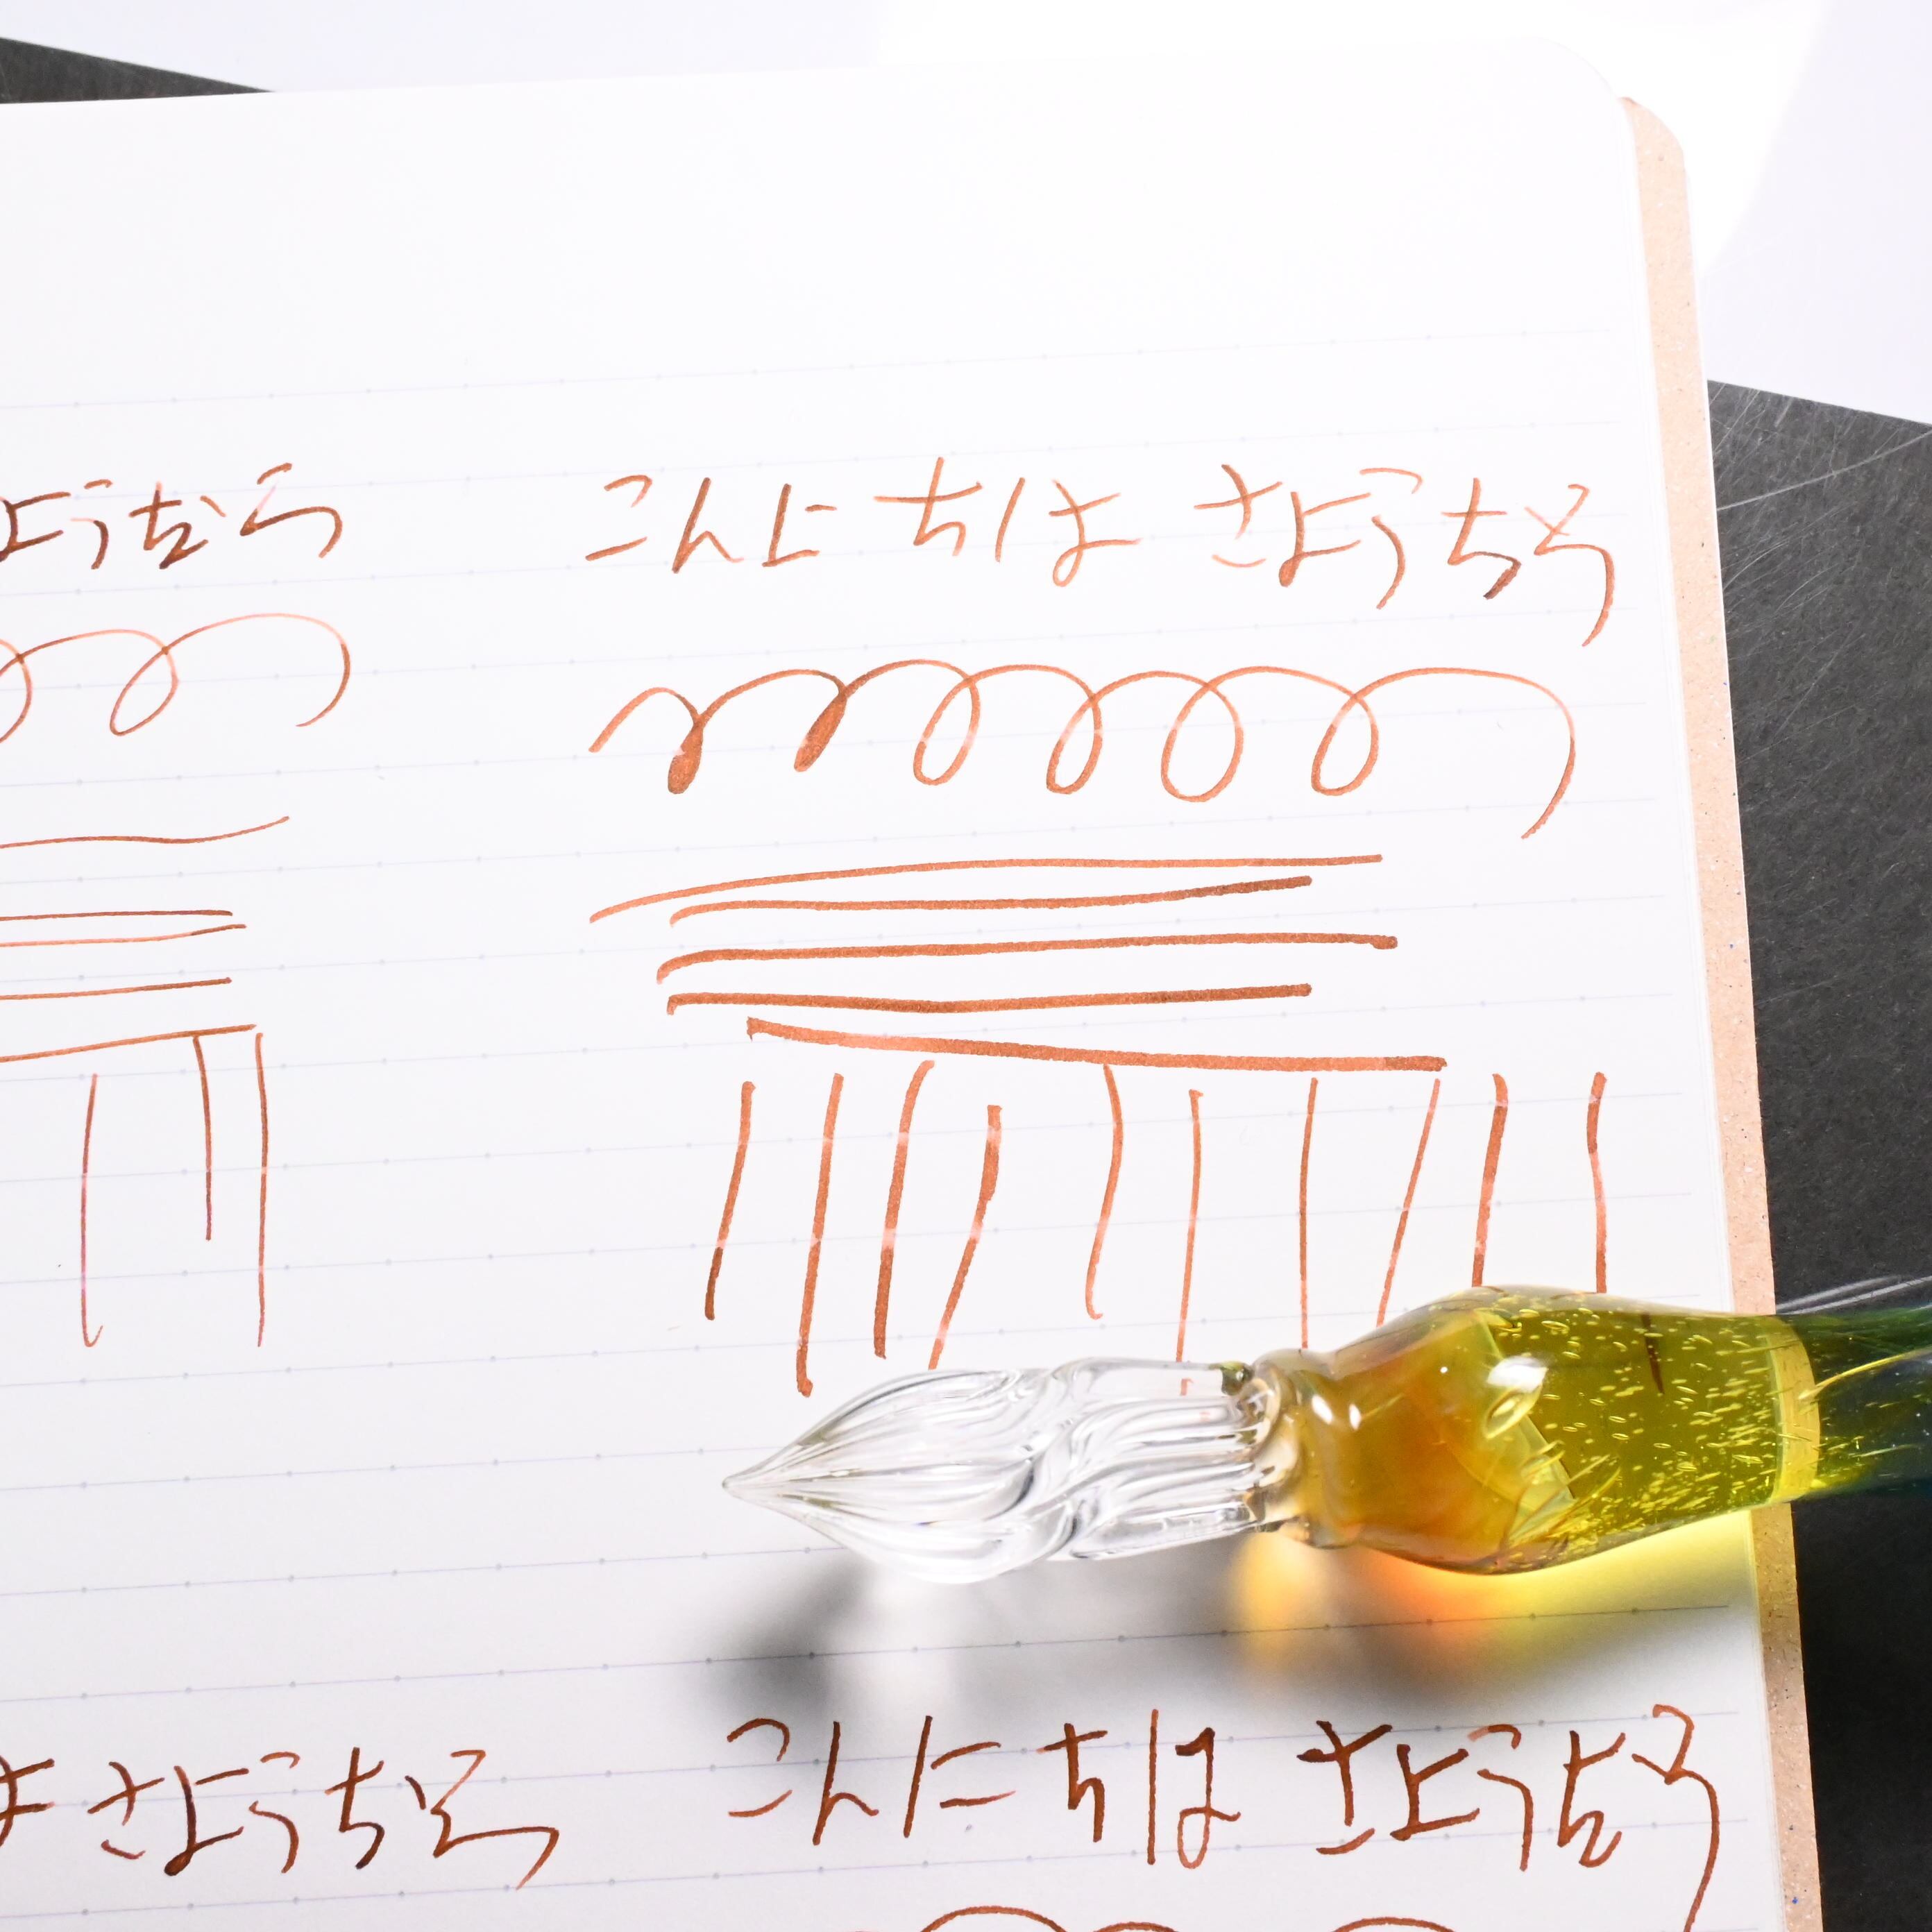 ようなら こんにちは さようなら
は さようなら こんにちは さようなら